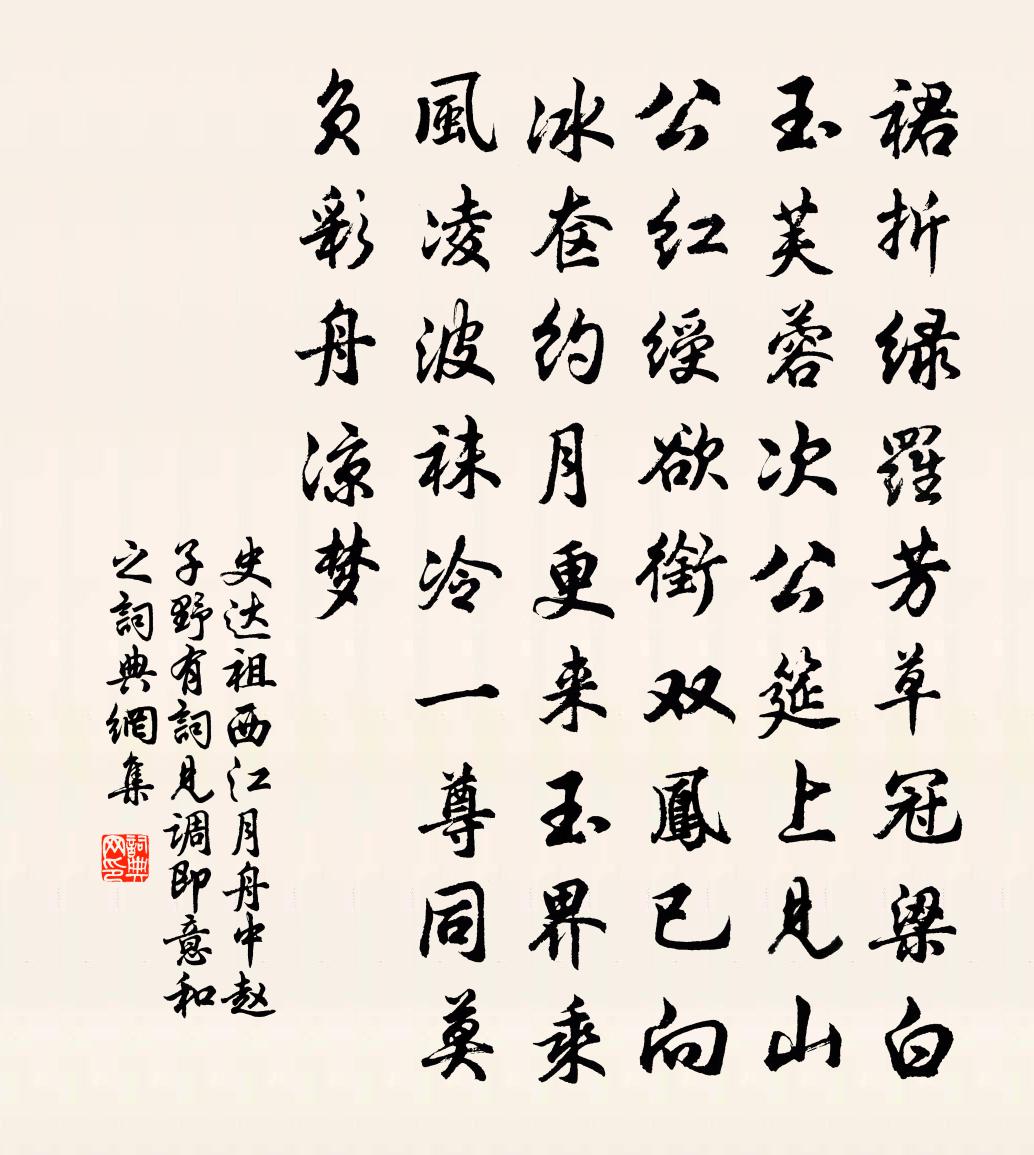 裙折绿羅芳草冠梁白
玉芙蓉次公筵上見山
公红绶欲銜双鳳已向
冰奁约月更来玉界乘
風凌波袜冷一尊同莫
负彩舟凉梦
史达祖西江月舟中赵
子野有詞見调即意和
之詞典網集
詞典网印